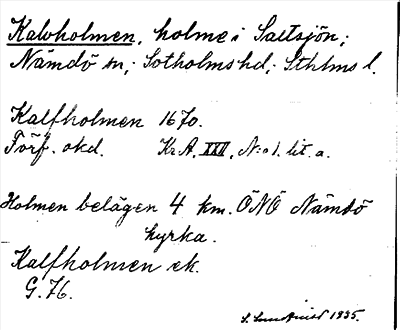 Kalvholmen, holme i Saltsjön;
Nämdö sn; Sotholms hd; Sthlms l.
Kalfholmen 1670.
Förf. okd. Kr.A. XXII, N:o 1. lit. a.
Holmen belägen 4 km. ÖNÖ Nämdö
kyrka.
Kalfholmen ek.
G. 76.
S. Lundqvist 1935.